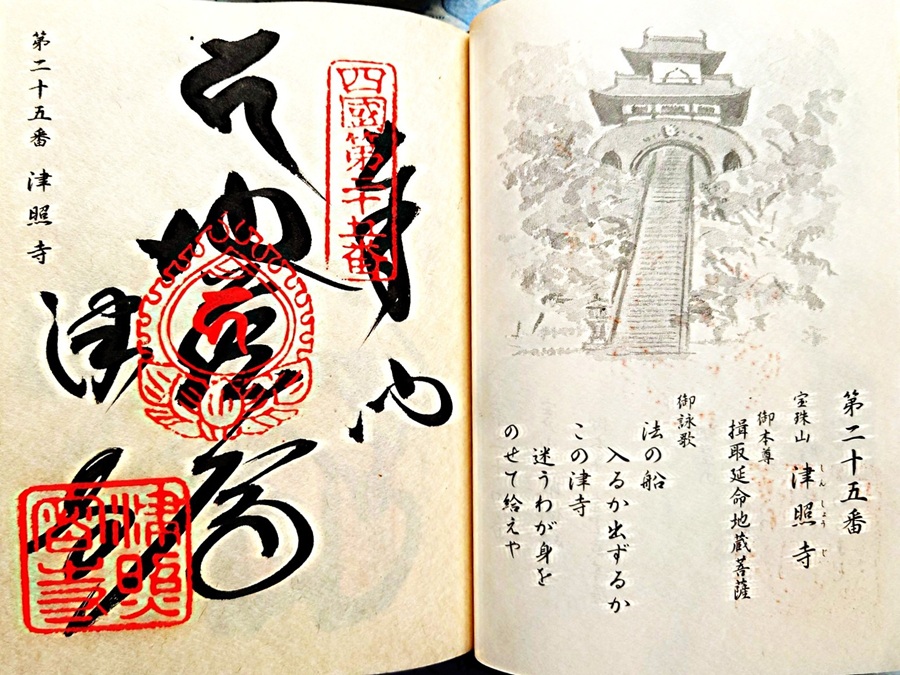 第二十五番
宝珠山 津照寺
しんしょうじ
御本尊
揖取延命地蔵菩薩
御詠歌
法の船
入るか出ずるか
この津寺
迷うわが身を
のせて給えや
四國第二十五番
奉納
津寺
第二十五番 津照寺